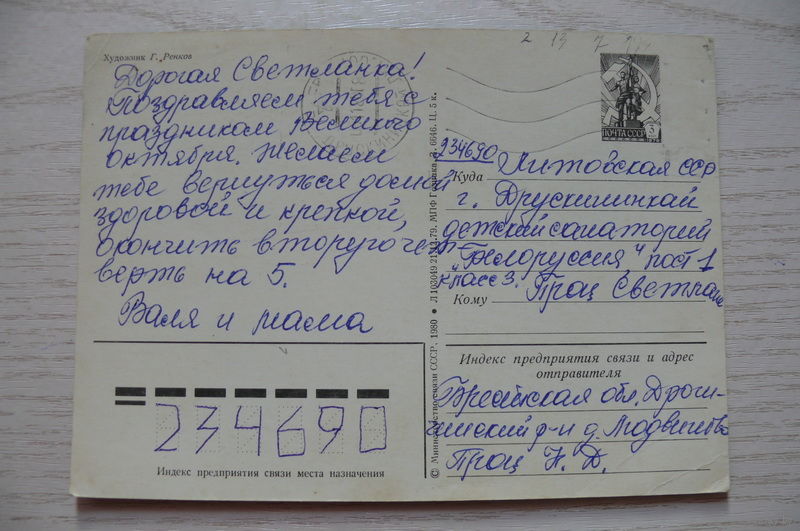 Художник Г. Ренков
Дорогая Светланка!
Поздравляем тебя с
праздником Великого
октября. Желаем
тебе вернуться домой
здоровой и крепкой,
окончить вторую чет-
верть на 5.
Валя и мама
Индекс предприятия связи места назначения
234690
© Министерство связи СССР. 1980 • Л 103049 21.11.79. МПФ Гознака. З. 6646. Ц. 5 к.
2 13 7
ПОЧТА СССР 3
234690
Куда Литовская сср
г. Друскининкай
детский санаторий
"Белоруссия" пост 1
класс 3.
Кому Проц Светлане
Индекс предприятия связи и адрес
отправителя
Брестская обл. Дроги-
чинский р-н д. Людвиново
Проц Н. Д.